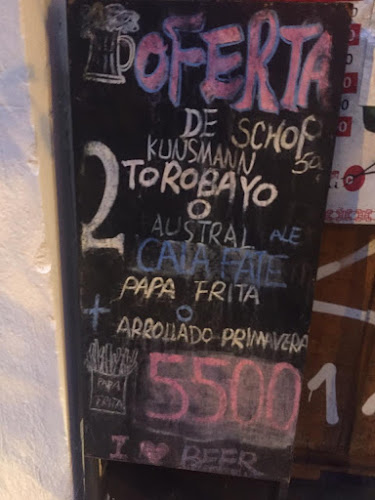 OFERTA
DE SCHOP
KUNSMANN
2 TOROBAYO
O
AUSTRAL ALE
CALAFATE
PAPA FRITA
+ O
ARROLLADO PRIMAVERA
PAPA FRITA
5500
I ♥ BEER